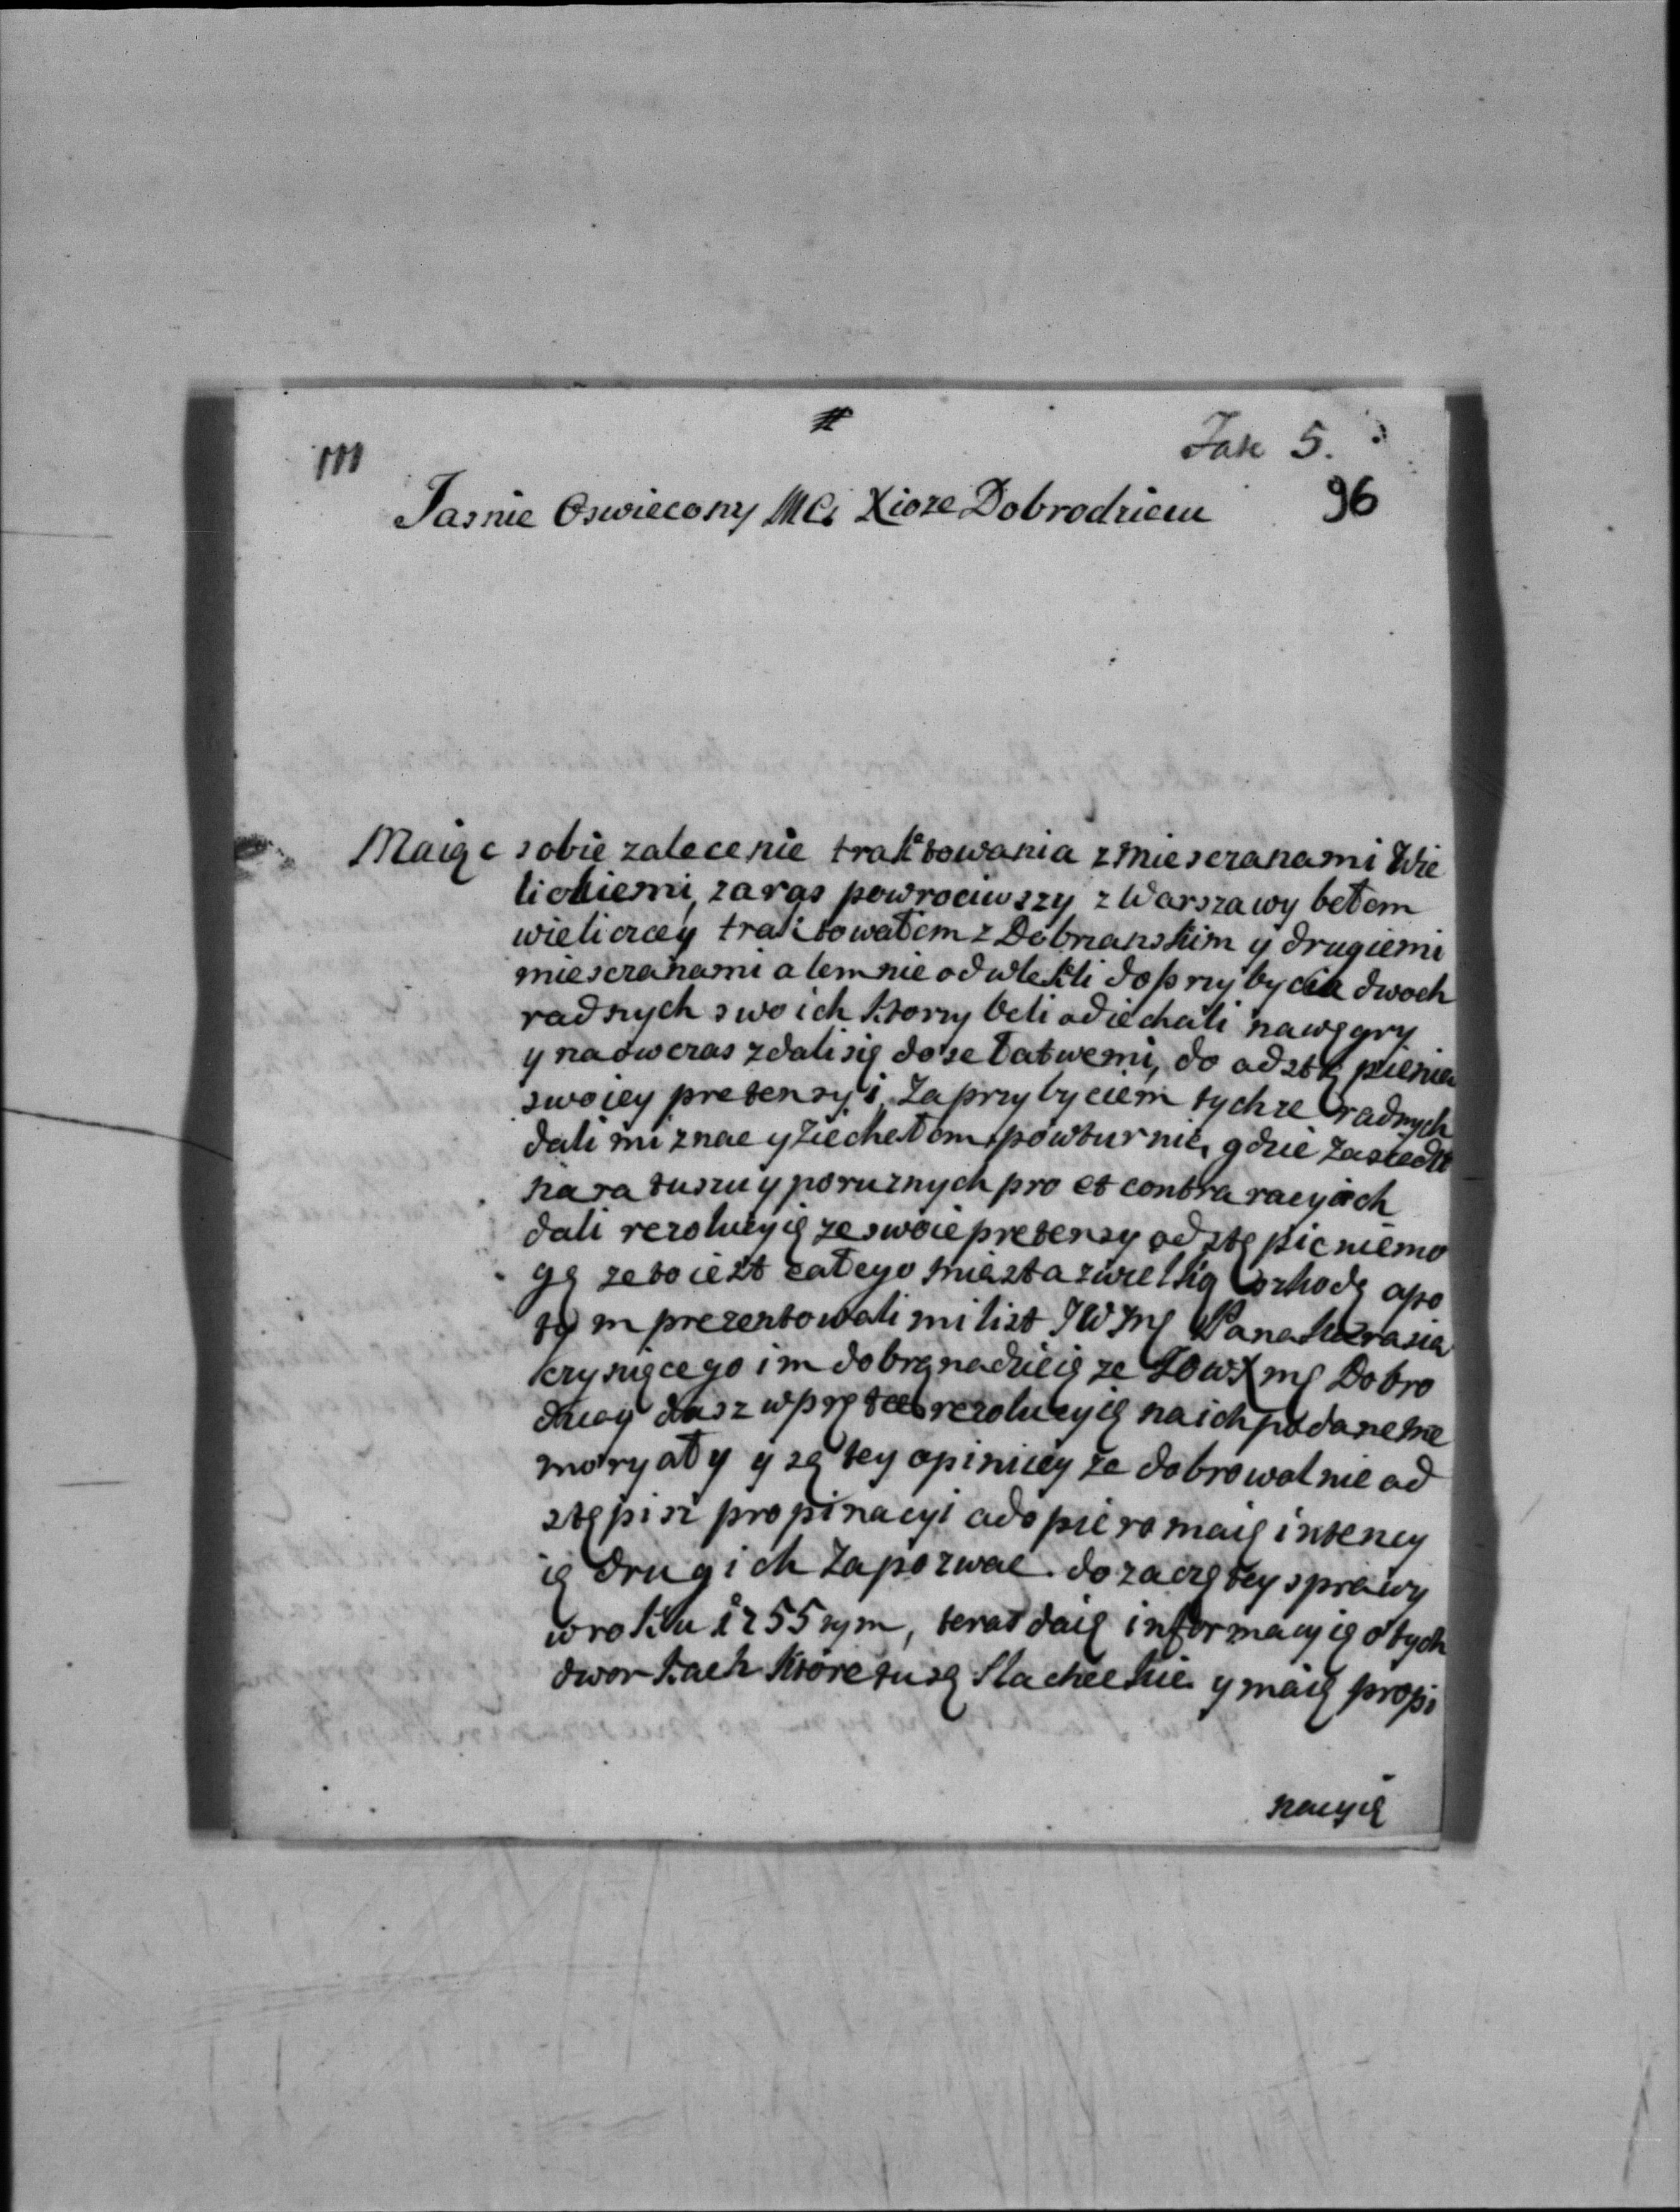 Fasc 5.
111
96
Jasnie Oswiecony Mci Xioze Dobrodzieiu
Maiąc sobie zalecenie traktowania z mieszczanami Wie
lickiemi, zaras powrociwszy z Warszawy bełem
wieliczcey traktowałem z Dobrzanskim y drugiemi
mieszczanami alem nie odwlekli do przybycia dwoch
radnych swoich ktorzy beli odiechali na węgry
y na ow czas zdali się dosc łatwemi, do odstą pienia
swoiey pretensyi, Za przybyciem tychze radnych
dali mi znac y ziechełem powturnie, gdzie zasiedli
na ratuszu y po ruznych pro et contra racyiach
dali rezolucyią ze swoie pretensy odstąpic niemo
gą ze to iest całego miasta z wielką szkodą apo
tym prezentowali mi list JW Jmę Pana
czyniącego im dobrą nadzieię ze JOWXmę Dobro
dziey dasz wprętce rezolucyią na ich podane me
moryały y są tey opiniiey ze dobrowolnie od
stąpisz propinacyi adopiero maią intency
ią drugich zapozwac do zaczętey sprawy
wroku 1755 sym, teras daią informacyią o tych
dworkach ktore tu są slacheckie y maią propi
nacyią